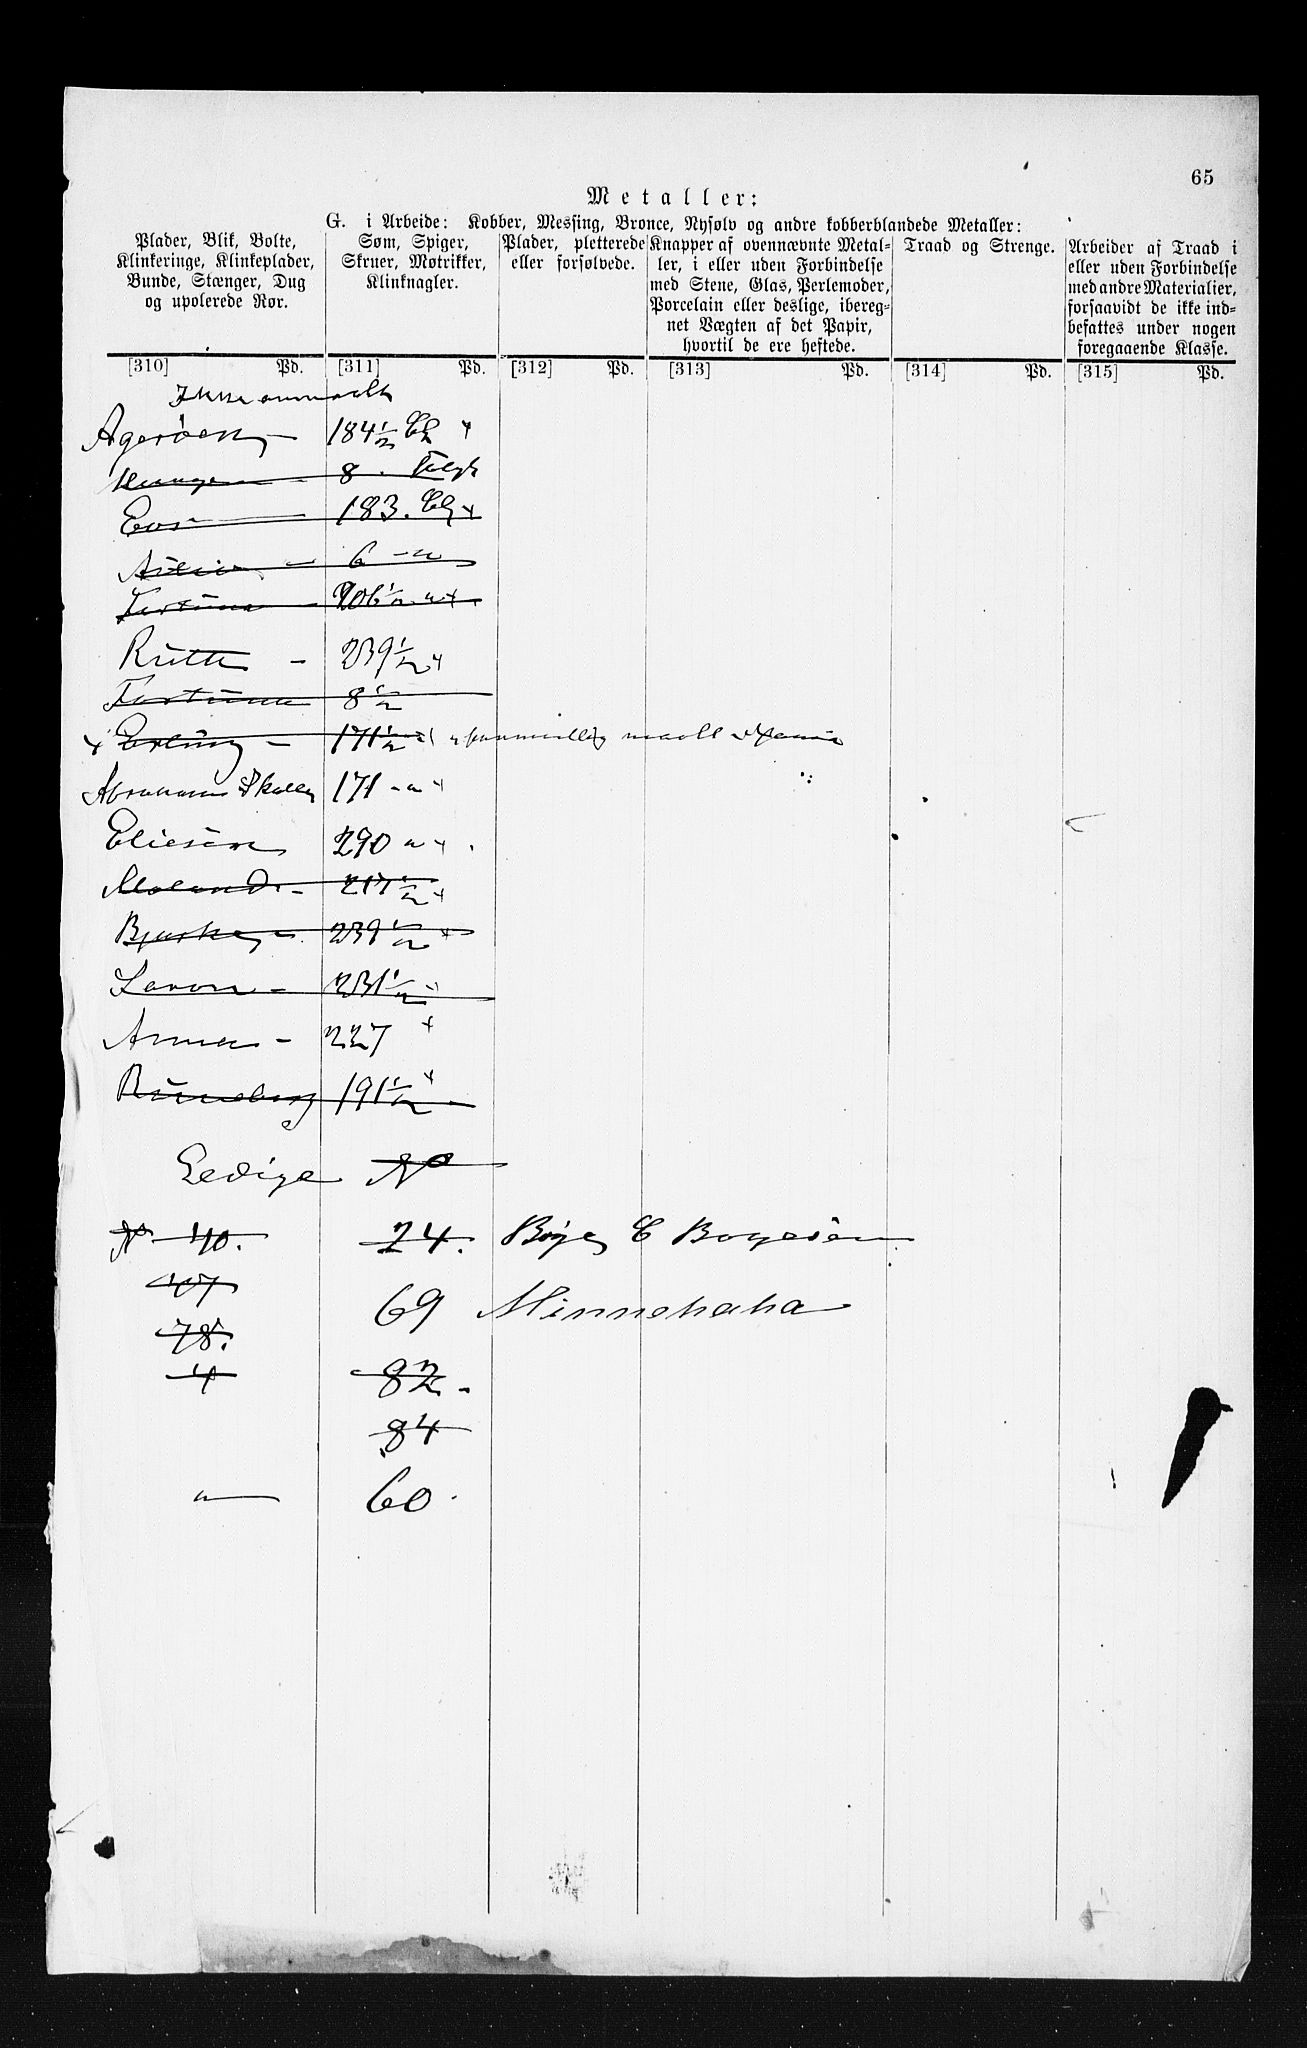 65
Metaller:
G. i Arbeide: Kobber, Messing, Bronce, Nysølv og andre kobberblandede Metaller:
Plader, Blik, Bolte,
Klinkeringe, Klinkeplader,
Bunde, Stænger, Dug
og upolerede Rør.
Søm, Spiger,
Skruer, Møtrikker,
Klinknagler.
Plader, pletterede
eller forsølvede.
Knapper af ovennævnte Metal-
ler, i eller uden Forbindelse
med Stene, Glas, Perlemoder,
Porcelain eller deslige, ibereg-
net Vægten af det Papir,
hvortil de ere heftede.
Traad og Strenge.
Arbeider af Traad i
eller uden Forbindelse
med andre Materialier,
forsaavidt de ikke ind-
befattes under nogen
foregaaende Klasse.
[310] Pd. [311] Pd. [312] Pd. [313] Pd. [314] Pd. [315] Pd.
Ikke anmeldt
Agerøen - 184 1/2
8
Eos 183
6 - "
Fortuna - 206 1/2 "
Ruth - 239 1/2
Fortuna 8 1/2
Erling - 171 1/2
Abraham 171 - "
Eliesèr 290 "
217 1/2
239 1/2
231 1/2
Anna - 227
Runeberg 191 1/2
Ledige No
No 40. 24. C Boyesen
47
69 Minnehaha
78.
4 82.
84
" 60